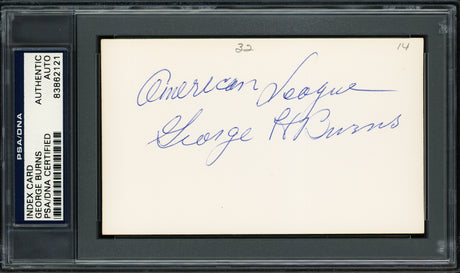 PSA/DNA
AUTHENTIC
AUTO
83862121
INDEX CARD
GEORGE BURNS
PSA/DNA CERTIFIED
32
14
American League
George H Burns